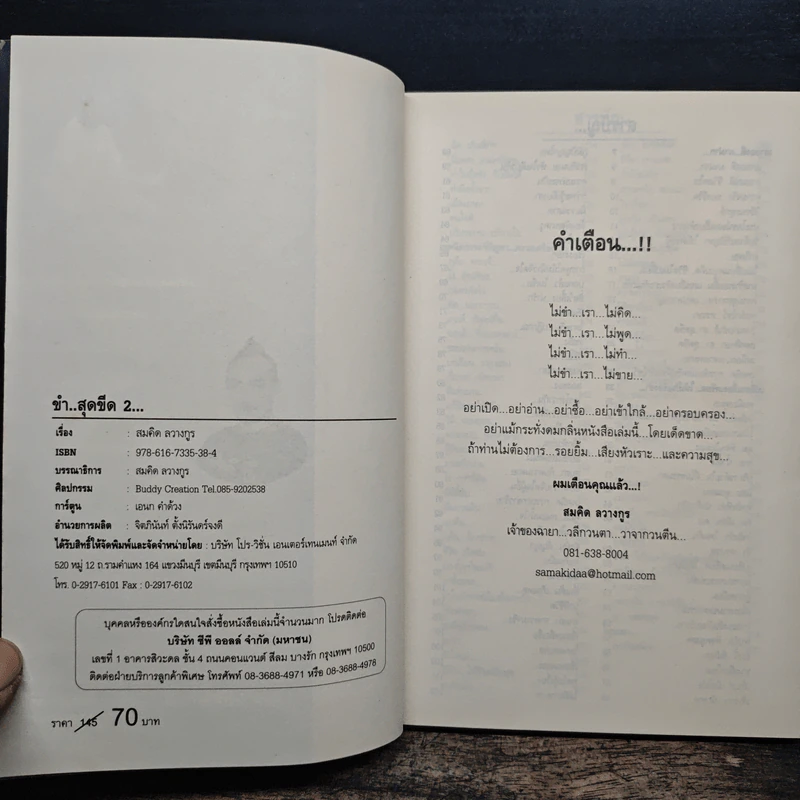 ขำ..สุดขีด 2...
เรื่อง : สมคิด ลวางกูร
ISBN : 978-616-7335-38-4
บรรณาธิการ : สมคิด ลวางกูร
ศิลปกรรม : Buddy Creation Tel.085-9202538
การ์ตูน : เอนก คำด้วง
อำนวยการผลิต : จิตภินันท์ ตั้งนิรันดร์จงดี
ได้รับสิทธิ์ให้จัดพิมพ์และจัดจำหน่ายโดย : บริษัท โปร-วิชั่น เอนเตอร์เทนเมนท์ จำกัด
520 หมู่ 12 ถ.รามคำแหง 164 แขวงมีนบุรี เขตมีนบุรี กรุงเทพฯ 10510
โทร. 0-2917-6101 Fax : 0-2917-6102
บุคคลหรือองค์กรใดสนใจสั่งซื้อหนังสือเล่มนี้จำนวนมาก โปรดติดต่อ
บริษัท ซีพี ออลล์ จำกัด (มหาชน)
เลขที่ 1 อาคารสิวะดล ชั้น 4 ถนนคอนแวนต์ สีลม บางรัก กรุงเทพฯ 10500
ติดต่อฝ่ายบริการลูกค้าพิเศษ โทรศัพท์ 08-3688-4971 หรือ 08-3688-4978
ราคา 145 70 บาท
คำเตือน...!!
ไม่ขำ...เรา...ไม่คิด...
ไม่ขำ...เรา...ไม่พูด...
ไม่ขำ...เรา...ไม่ทำ...
ไม่ขำ...เรา...ไม่ขาย...
อย่าเปิด...อย่าอ่าน...อย่าซื้อ...อย่าเข้าใกล้...อย่าครอบครอง...
อย่าแม้กระทั่งดมกลิ่นหนังสือเล่มนี้...โดยเด็ดขาด...
ถ้าท่านไม่ต้องการ...รอยยิ้ม...เสียงหัวเราะ...และความสุข...
ผมเตือนคุณแล้ว...!
สมคิด ลวางกูร
เจ้าของฉายา...วลีกวนตา...วาจากวนตีน...
081-638-8004
samakidaa@hotmail.com